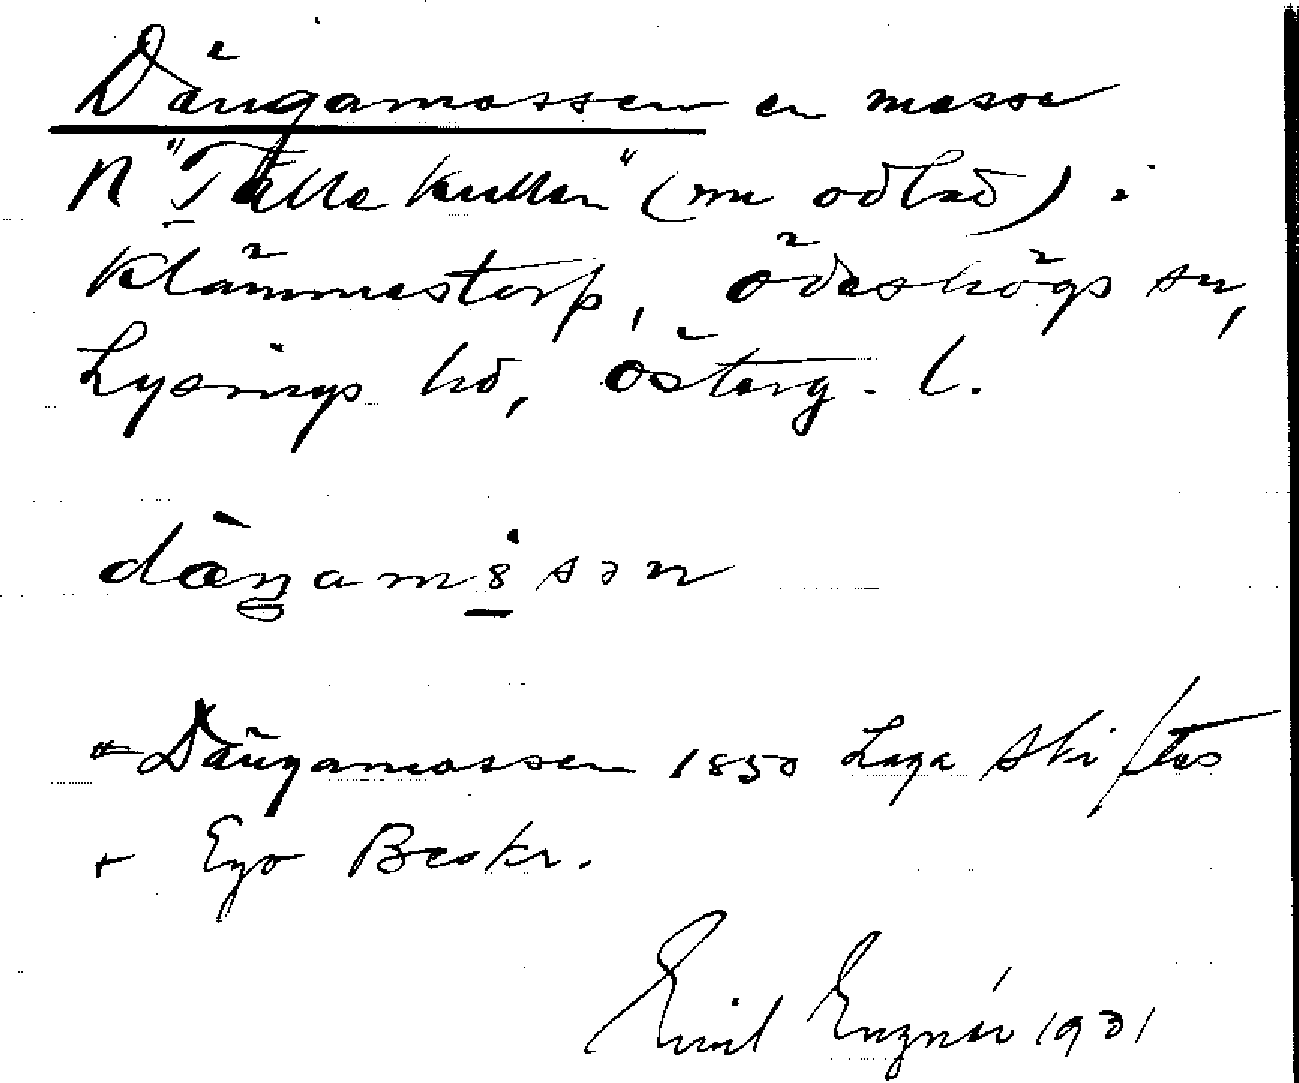 Dängamossen en mosse
N "Talle kullen" (nu odlad) i
Klämmestorp, Ödeshögs sn,
Lysings hd, Österg. l.
dæŋam8sən
"Dängamossen 1850 Laga skiftes
+ Ego Beskr.
Emil Engnér 1931